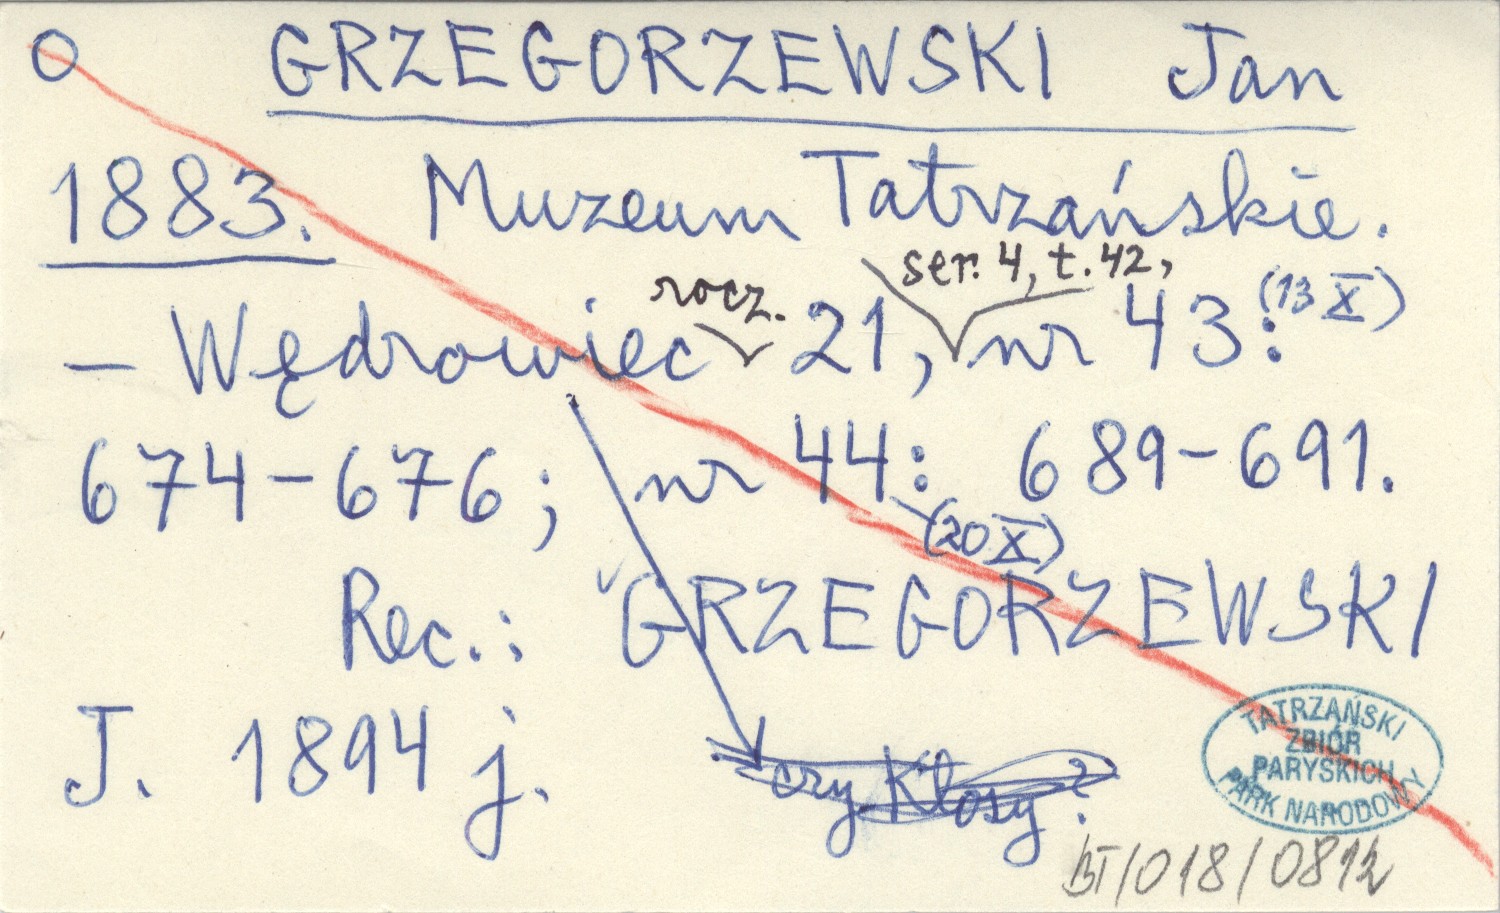 O GRZEGORZEWSKI Jan
1883. Muzeum Tatrzańskie.
rocz. ser. 4, t. 42,
– Wędrowiec 21, nr 43: (13 X)
674–676; nr 44: 689–691.
(20 X)
Rec.: GRZEGORZEWSKI
J. 1894 j.
czy Kłosy?
TATRZAŃSKI
ZBIÓR
PARYSKICH
PARK NARODOWY
BT/018/0812